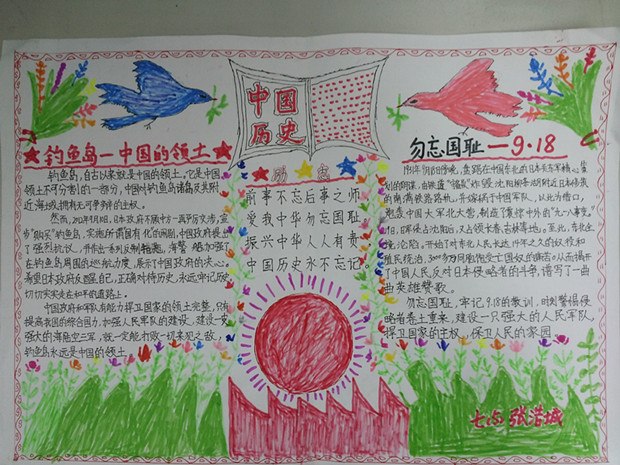 中国
历史
钓鱼岛—中国的领土
钓鱼岛，自古以来就是中国的领土，它是中国
领土不可分割的一部分，中国对钓鱼岛诸岛及其附
近海域拥有无可争辩的主权。
然而，2012年9月10日，日本政府不顾中方一再严厉交涉，宣
布“购买”钓鱼岛，实施所谓“国有化”的闹剧，中国政府提出
了强烈抗议，并作出一系列反制
在钓鱼岛周围的巡航力度，展示中国政府的决心，
希望日本政府反醒自己，正确对待历史，永远牢记历史
切切实实走在和平的道路上。
中国政府和军队有能力捍卫国家的领土完整，只有
提高我国的综合国力，加强人民军队的建设，建设一支
强大的海陆空三军，就一定能打败一切来犯之敌，
钓鱼岛永远是中国的领土。
励志
前事不忘后事之师
爱我中华勿忘国耻
振兴中华人人有责
中国历史永不忘记
勿忘国耻—9·18
1931年9月18日傍晚，盘踞在中国东北的日本关东军精心策
划的阴谋，由铁道“守备队”炸毁沈阳柳条湖附近日本修筑
的南满铁路路轨，并嫁祸于中国军队，以此为借口，
炮轰中国大军北大营，制造了震惊中外的“九一八事变”，
次日，日军侵占沈阳，又占领长春、吉林等地。至此，东北全
境，沦陷，开始了对东北人民长达14年之久的奴役和
殖民统治，3000多万同胞
中国人民反对日本侵略者的斗争，谱写了一曲
曲英雄赞歌。
勿忘国耻，牢记9.18的教训，时刻警惕侵
略者卷土重来，建设一只强大的人民军队
捍卫国家的主权，保卫人民的家园
七(5) 张浩城